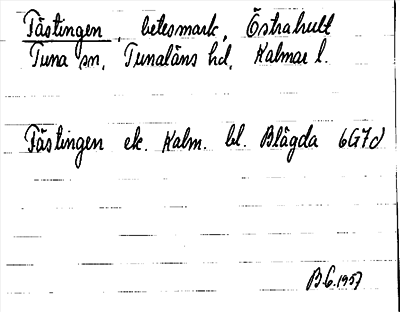 Tästingen, betesmark, Östrahult
Tuna sn, Tunaläns hd, Kalmar l.
Tästingen ek. Kalm. bl. Blägda 6G7d
B.G. 1957